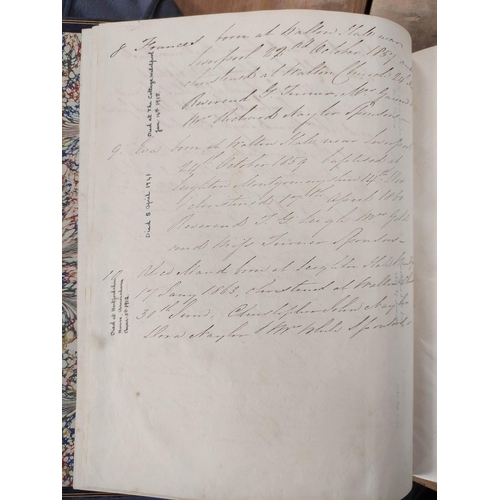 8 Frances born at Walton Hale near
Liverpool 29 October 1857 and
christened at Walton Church
Reverend G Turner, Mrs
Mr Richard Naylor Sponsors
Died at The Cottage
Jan 14th 1925
9. Eva born at Walton Hale near Liverpool
24th October 1859 baptised at
Leighton Montgomeryshire 14th Nov
christened April 1860
Reverend T G Leigh Mrs
and Miss Turner Sponsors
Died 5 April 1941
10 Alice Maud born at Leighton Hall
17 Jany 1863, christened at Walton
30th June, Christopher John Naylor
Dora Naylor & Mrs White Sponsors
Died at
House